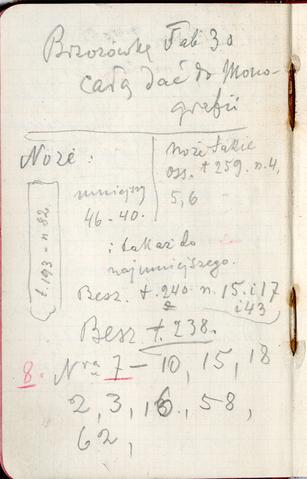 Brzozówkę Tab 30
całą dać do Mono-
grafii
Noże:
noże takie
oss. t 259. n. 4,
5, 6
mniejszy
46-40.
t. 193 - n 82
i takaż do
najmniejszego.
Besz. t. 240. n. 15. i 17
i 43
Besz t. 238.
8. Nra 7 - 10, 15, 18
2, 3, 16., 58,
62,